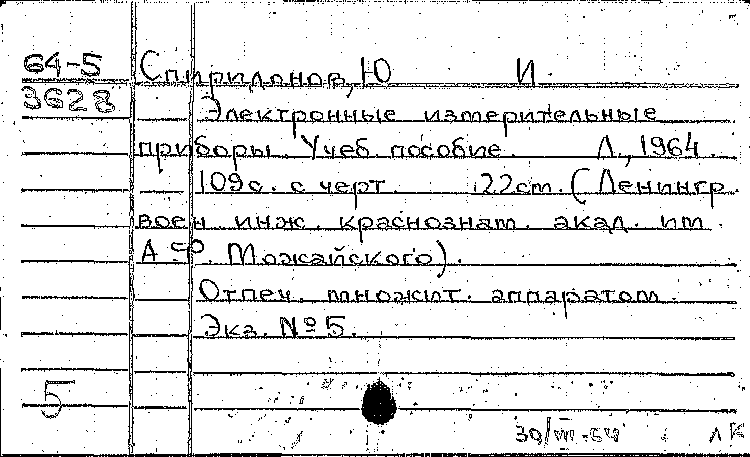 64-5 Спиридонов, Ю И.
3628
Электронные измерительные
приборы. Учеб. пособие. Л., 1964.
109с. с черт. 22см. (Ленингр.
воен. инж. краснознам. акад. им.
А.Ф. Можайского).
Отпеч. множит. аппаратом.
Экз. №5.
5
30/VII-64 ЛК